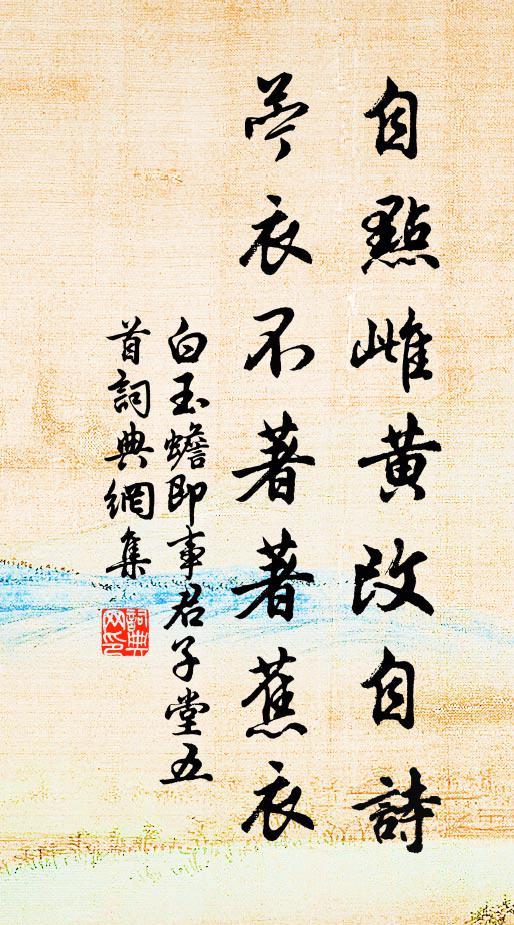 自點雌黃改自詩
苧衣不著著蕉衣
白玉蟾即事君子堂五
首詞典網集
詞典
网印